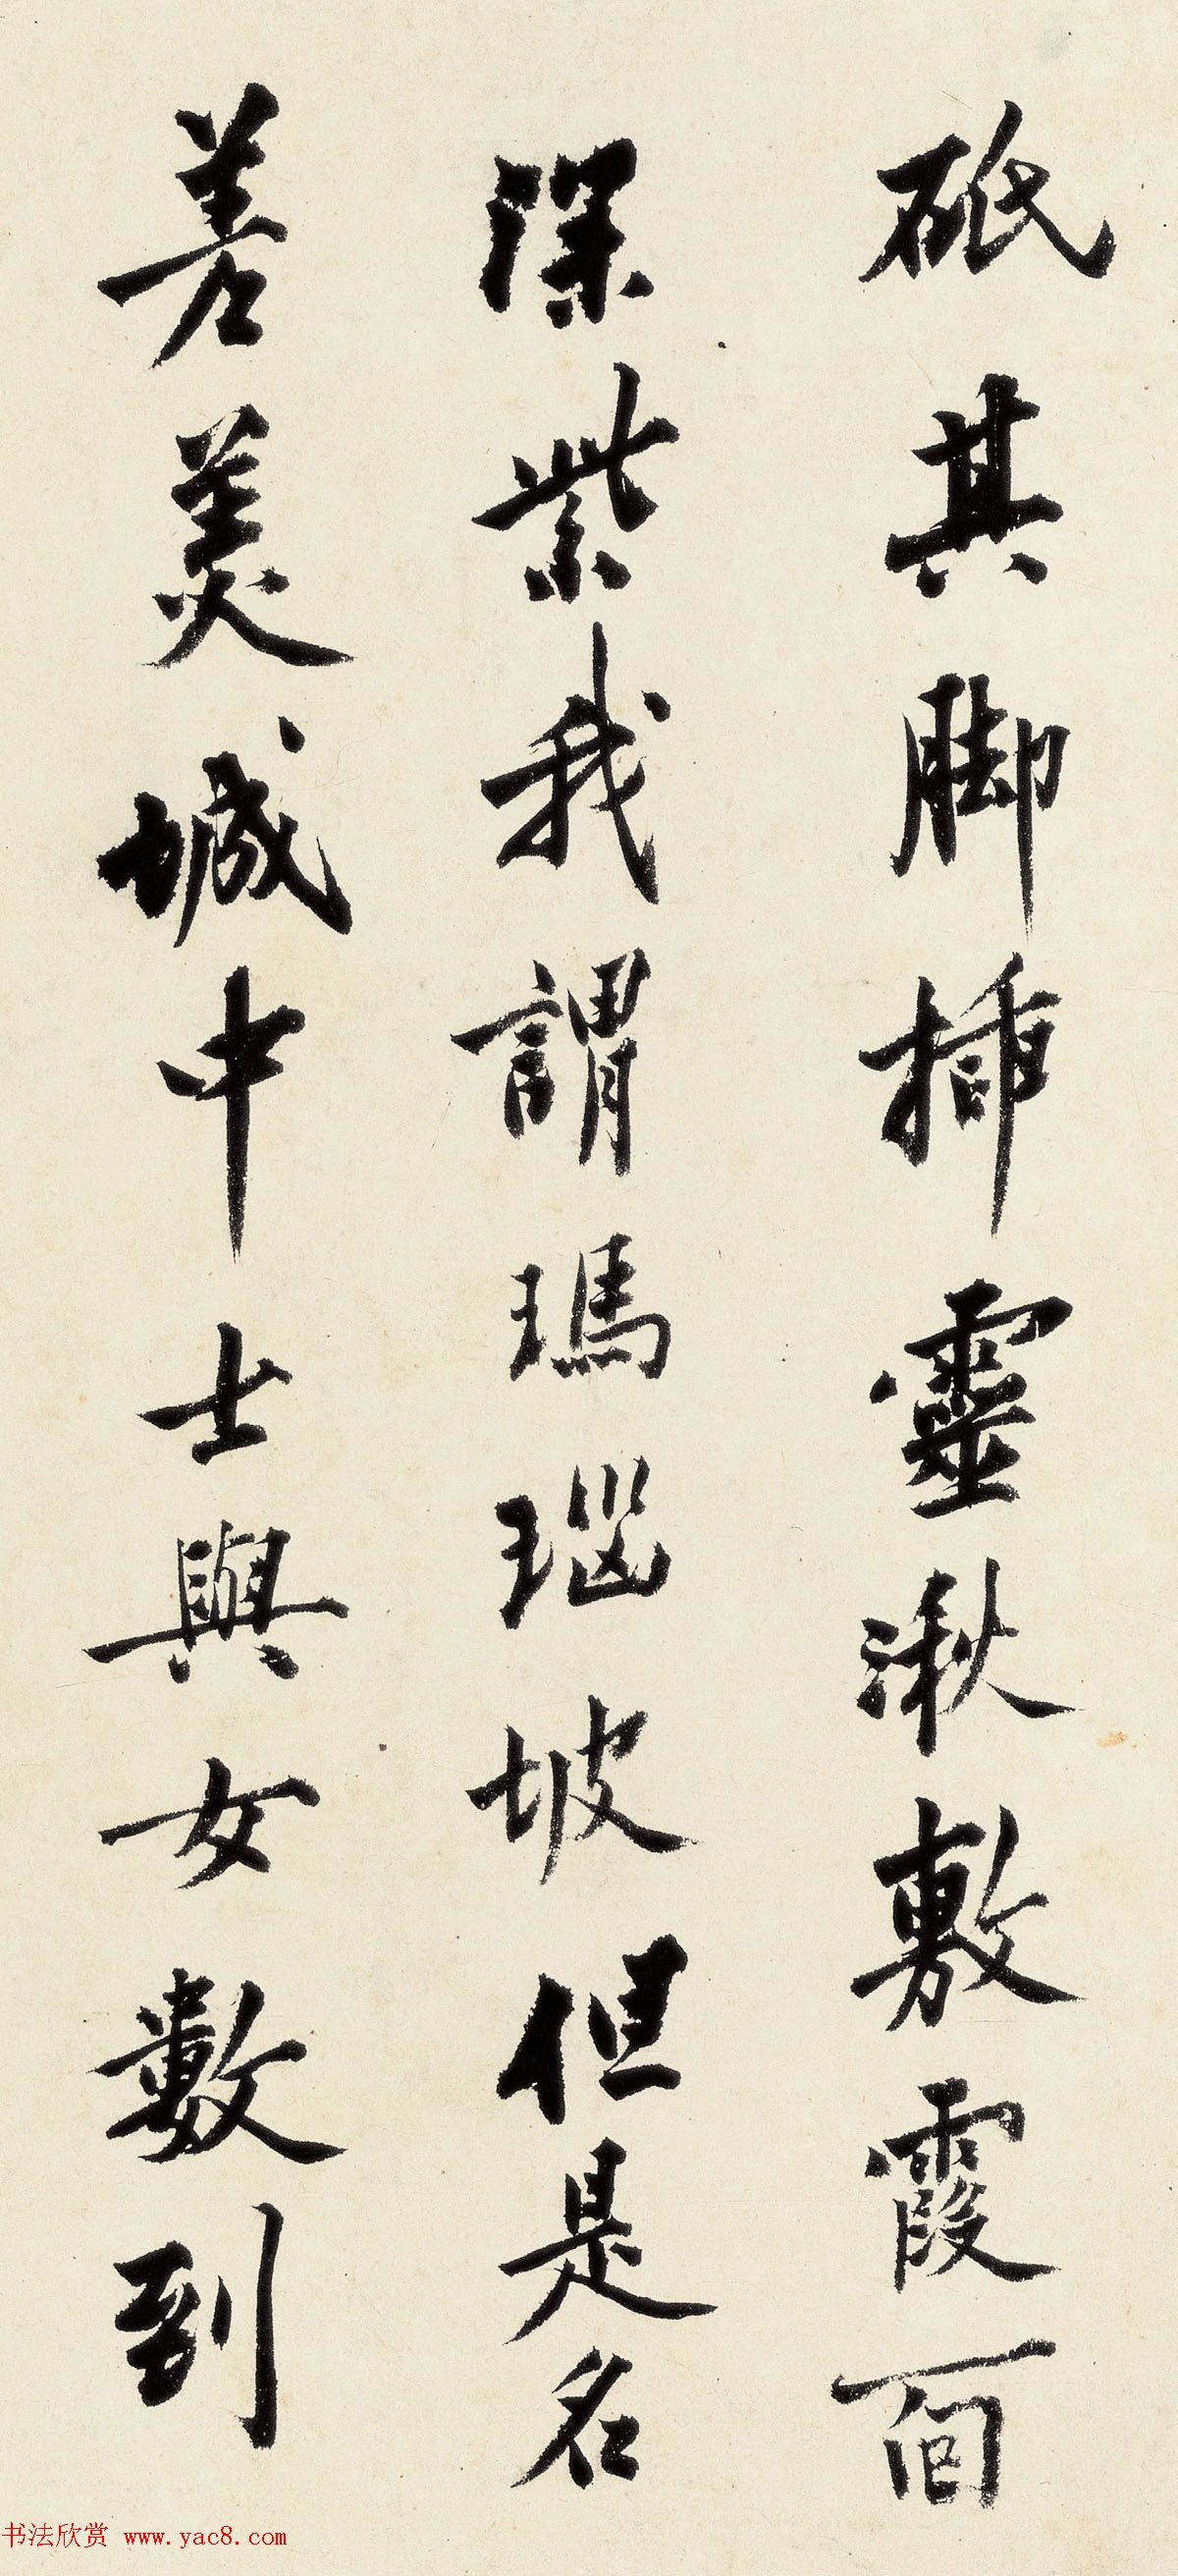 砥其脚插靈湫敷霞面
深紫我謂瑪瑙坡但是名
差美城中士與女數到
书法欣赏 www.yac8.com